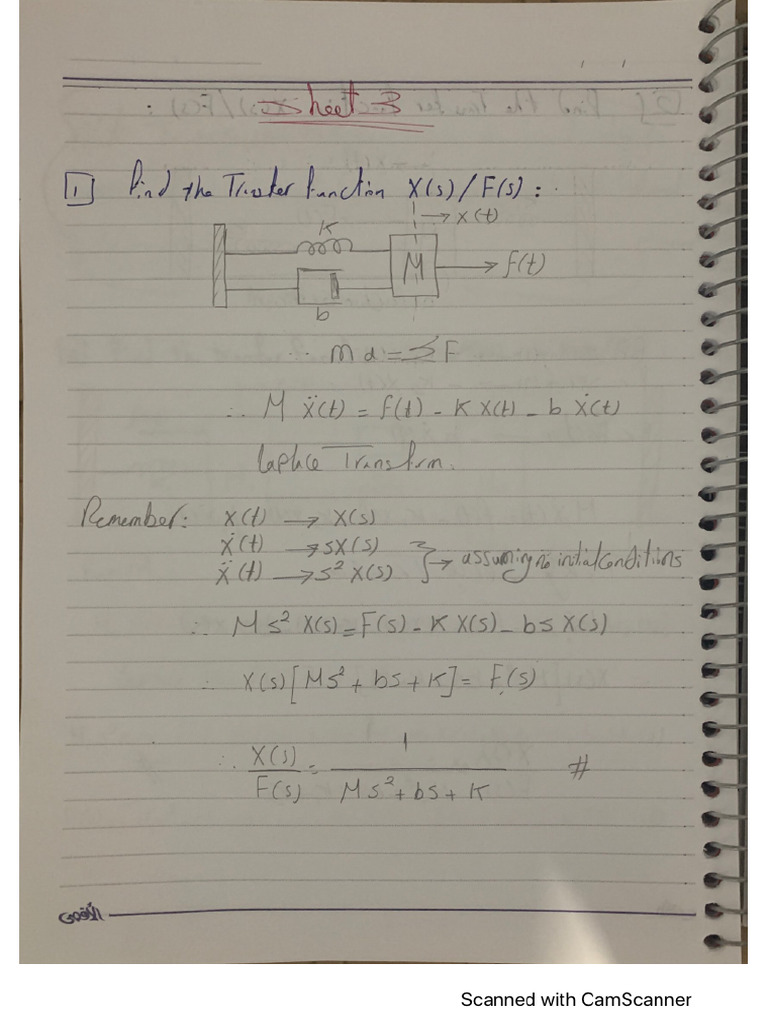 Sheet 3
1 Find the Transfer Function X(s)/F(s) :
→ x(t)
K
M → f(t)
b
∵ m a = Σ F
∴ M ẍ(t) = f(t) - K x(t) - b ẋ(t)
Laplace Transform.
Remember: x(t) → X(s)
ẋ(t) → sX(s)
ẍ(t) → s² X(s) } → assuming no initial conditions
∴ M s² X(s) = F(s) - K X(s) - bs X(s)
∴ X(s) [Ms² + bs + K] = F(s)
∴ X(s)/F(s) = 1/(Ms² + bs + K) #
Scanned with CamScanner